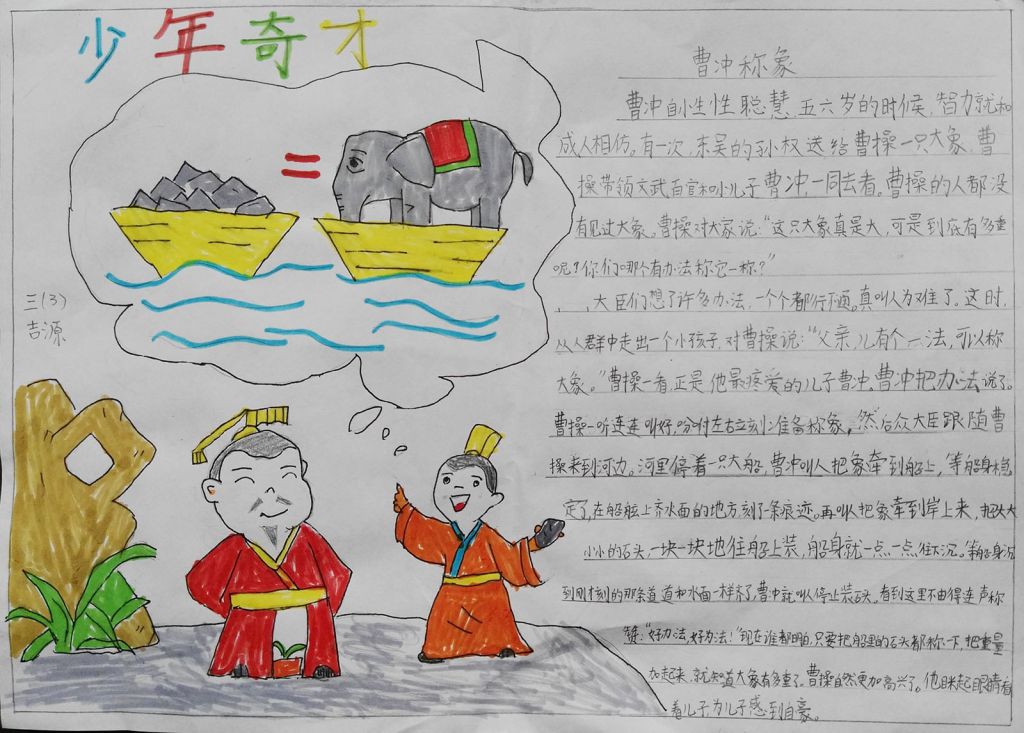 少年奇才
三(3)
吉源
曹冲称象
曹冲自小生性聪慧,五六岁的时候,智力就和
成人相仿。有一次,东吴的孙权送给曹操一只大象,曹
操带领文武百官和小儿子曹冲一同去看。曹操的人都没
有见过大象。曹操对大家说:“这只大象真是大,可是到底有多重
呢?你们哪个有办法称它一称?”
大臣们想了许多办法,一个个都行不通。真叫人为难了。这时,
从人群中走出一个小孩子,对曹操说:“父亲,儿有个一法,可以称
大象。”曹操一看正是他最疼爱的儿子曹冲。曹冲把办法说了。
曹操一听连连叫好,吩咐左右立刻准备称象,然后众大臣跟随曹
操来到河边。河里停着一只大船,曹冲叫人把象牵到船上,等船身稳
定了,在船舷上齐水面的地方刻了条痕迹。再叫人把象牵到岸上来,把大大
小小的石头,一块一块地往船上装,船身就一点一点往下沉。等船身沉
到刚才刻的那条道道和水面一样齐了,曹冲就叫停止装石头。看到这里不由得连声称
赞:“好办法,好办法!”现在谁都明白,只要把船里的石头都称一下,把重量
加起来,就知道大象有多重了。曹操自然更加高兴了。他眯起眼睛看
着儿子,为儿子感到自豪。